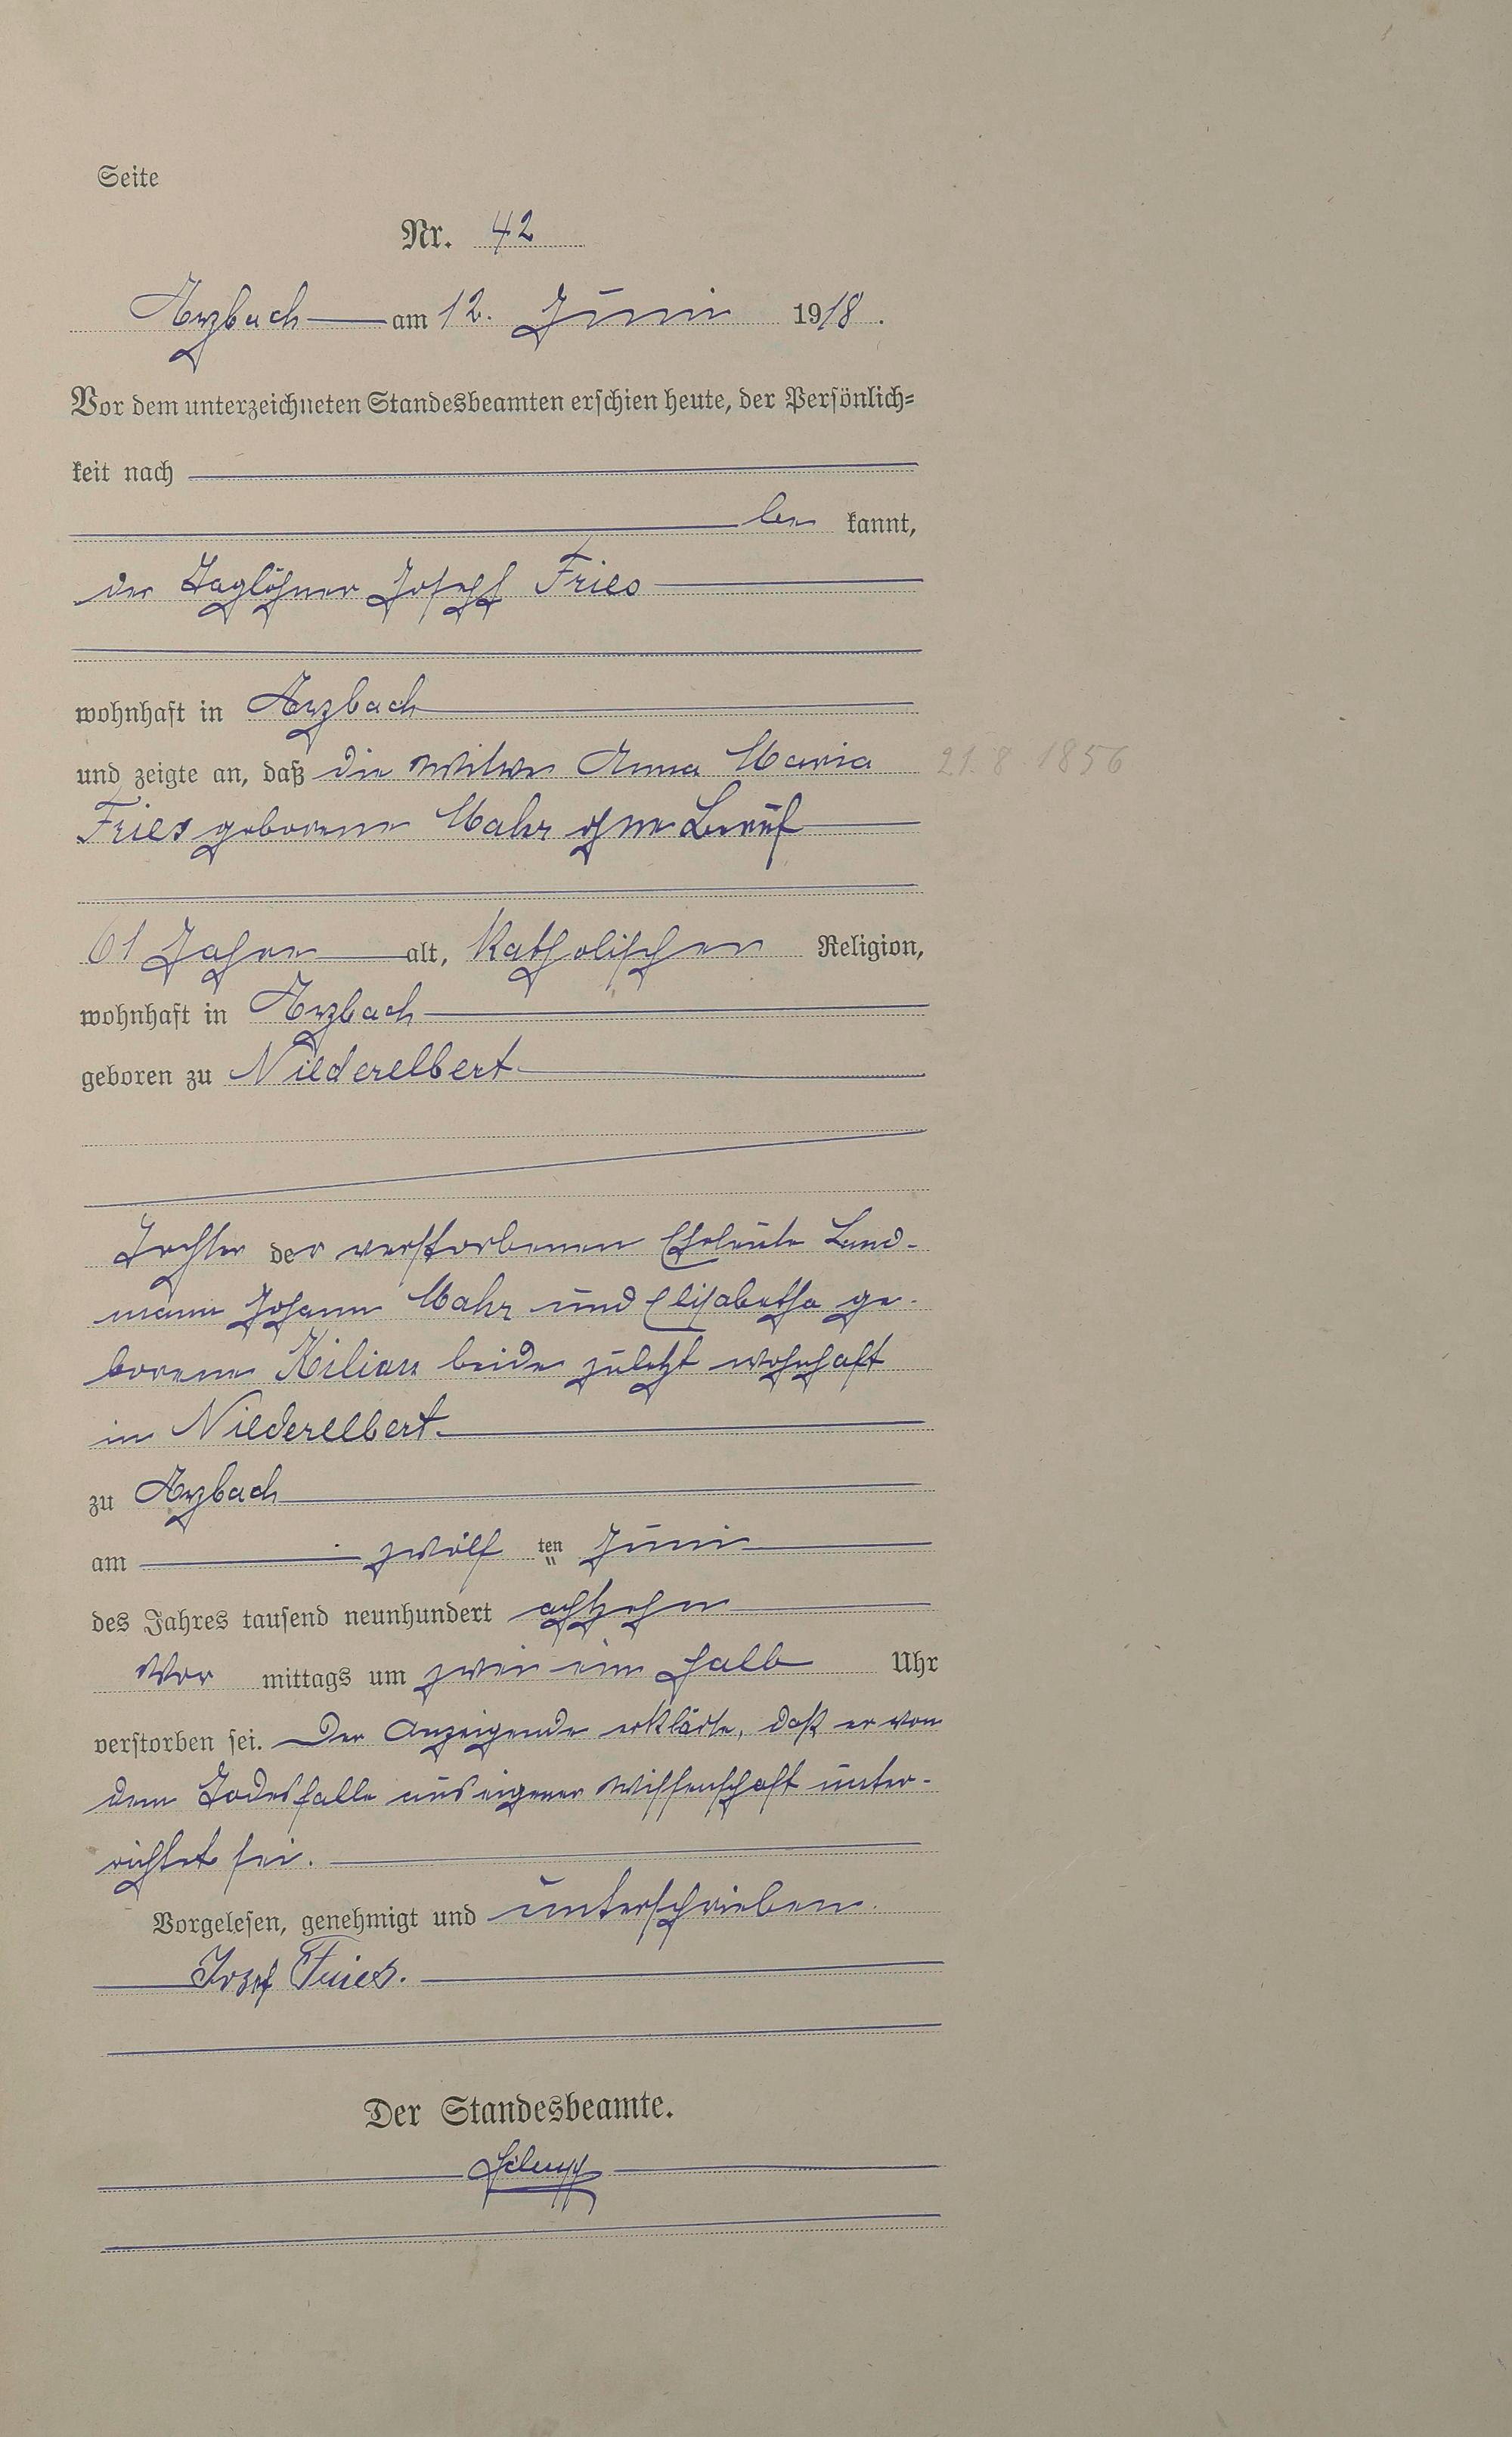 Seite
Nr. 42
Arzbach am 12. Juni 1918.
Vor dem unterzeichneten Standesbeamten erschien heute, der Persönlich=
keit nach
be kannt,
der Taglöhner Joseph Fries
wohnhaft in Arzbach
und zeigte an, daß die Witwe Anna Maria 21.8.1856
Fries geborene Mahr ohne Beruf
61 Jahre alt, katholischer Religion,
wohnhaft in Arzbach
geboren zu Niederelbert
Tochter der verstorbenen Eheleute Land-
mann Johann Mahr und Elisabetha ge-
borene Kilian beide zuletzt wohnhaft
in Niederelbert
zu Arzbach
am zwölf ten Juni
des Jahres tausend neunhundert achtzehn
Vor mittags um zwei ein halb Uhr
verstorben sei. Der Anzeigende erklärte, daß er von
dem Todesfalle aus eigener Wissenschaft unter-
richtet sei.
Vorgelesen, genehmigt und unterschrieben.
Josef Fries.
Der Standesbeamte.